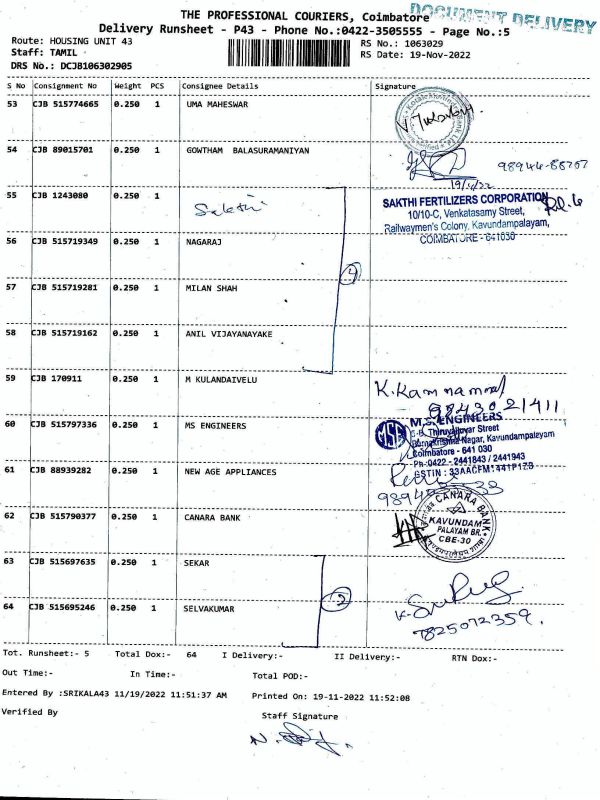 THE PROFESSIONAL COURIERS, Coimbatore
DOCUMENT DELIVERY
Delivery Runsheet - P43 - Phone No.:0422-3505555 - Page No.:5
Route: HOUSING UNIT 43
RS No.: 1063029
Staff: TAMIL
RS Date: 19-Nov-2022
DRS No.: DCJB106302905
S No Consignment No Weight PCS Consignee Details Signature
53 CJB 515774665 0.250 1 UMA MAHESWAR
54 CJB 89015701 0.250 1 GOWTHAM BALASURAMANIYAN
98944-88707
55 CJB 1243080 0.250 1 Sakthi
SAKTHI FERTILIZERS CORPORATION
10/10-C, Venkatasamy Street,
Railwaymen's Colony, Kavundampalayam,
COIMBATORE - 641030
56 CJB 515719349 0.250 1 NAGARAJ
4
57 CJB 515719281 0.250 1 MILAN SHAH
58 CJB 515719162 0.250 1 ANIL VIJAYANAYAKE
59 CJB 170911 0.250 1 M KULANDAIVELU
K. Kamnammal
9843021411
60 CJB 515797336 0.250 1 MS ENGINEERS
MSE
M.S. ENGINEERS
Thiruvalluvar Street
Ramakrishna Nagar, Kavundampalayam
Coimbatore - 641 030
Ph:0422 - 2441843 / 2441943
GSTIN : 33AACFM1441P1ZB
61 CJB 88939282 0.250 1 NEW AGE APPLIANCES
62 CJB 515790377 0.250 1 CANARA BANK
CANARA BANK
KAVUNDAM
PALAYAM BR.
CBE-30
63 CJB 515697635 0.250 1 SEKAR
2
64 CJB 515695246 0.250 1 SELVAKUMAR
7825072359.
Tot. Runsheet:- 5 Total Dox:- 64 I Delivery:- II Delivery:- RTN Dox:-
Out Time:- In Time:- Total POD:-
Entered By :SRIKALA43 11/19/2022 11:51:37 AM Printed On: 19-11-2022 11:52:08
Verified By
Staff Signature